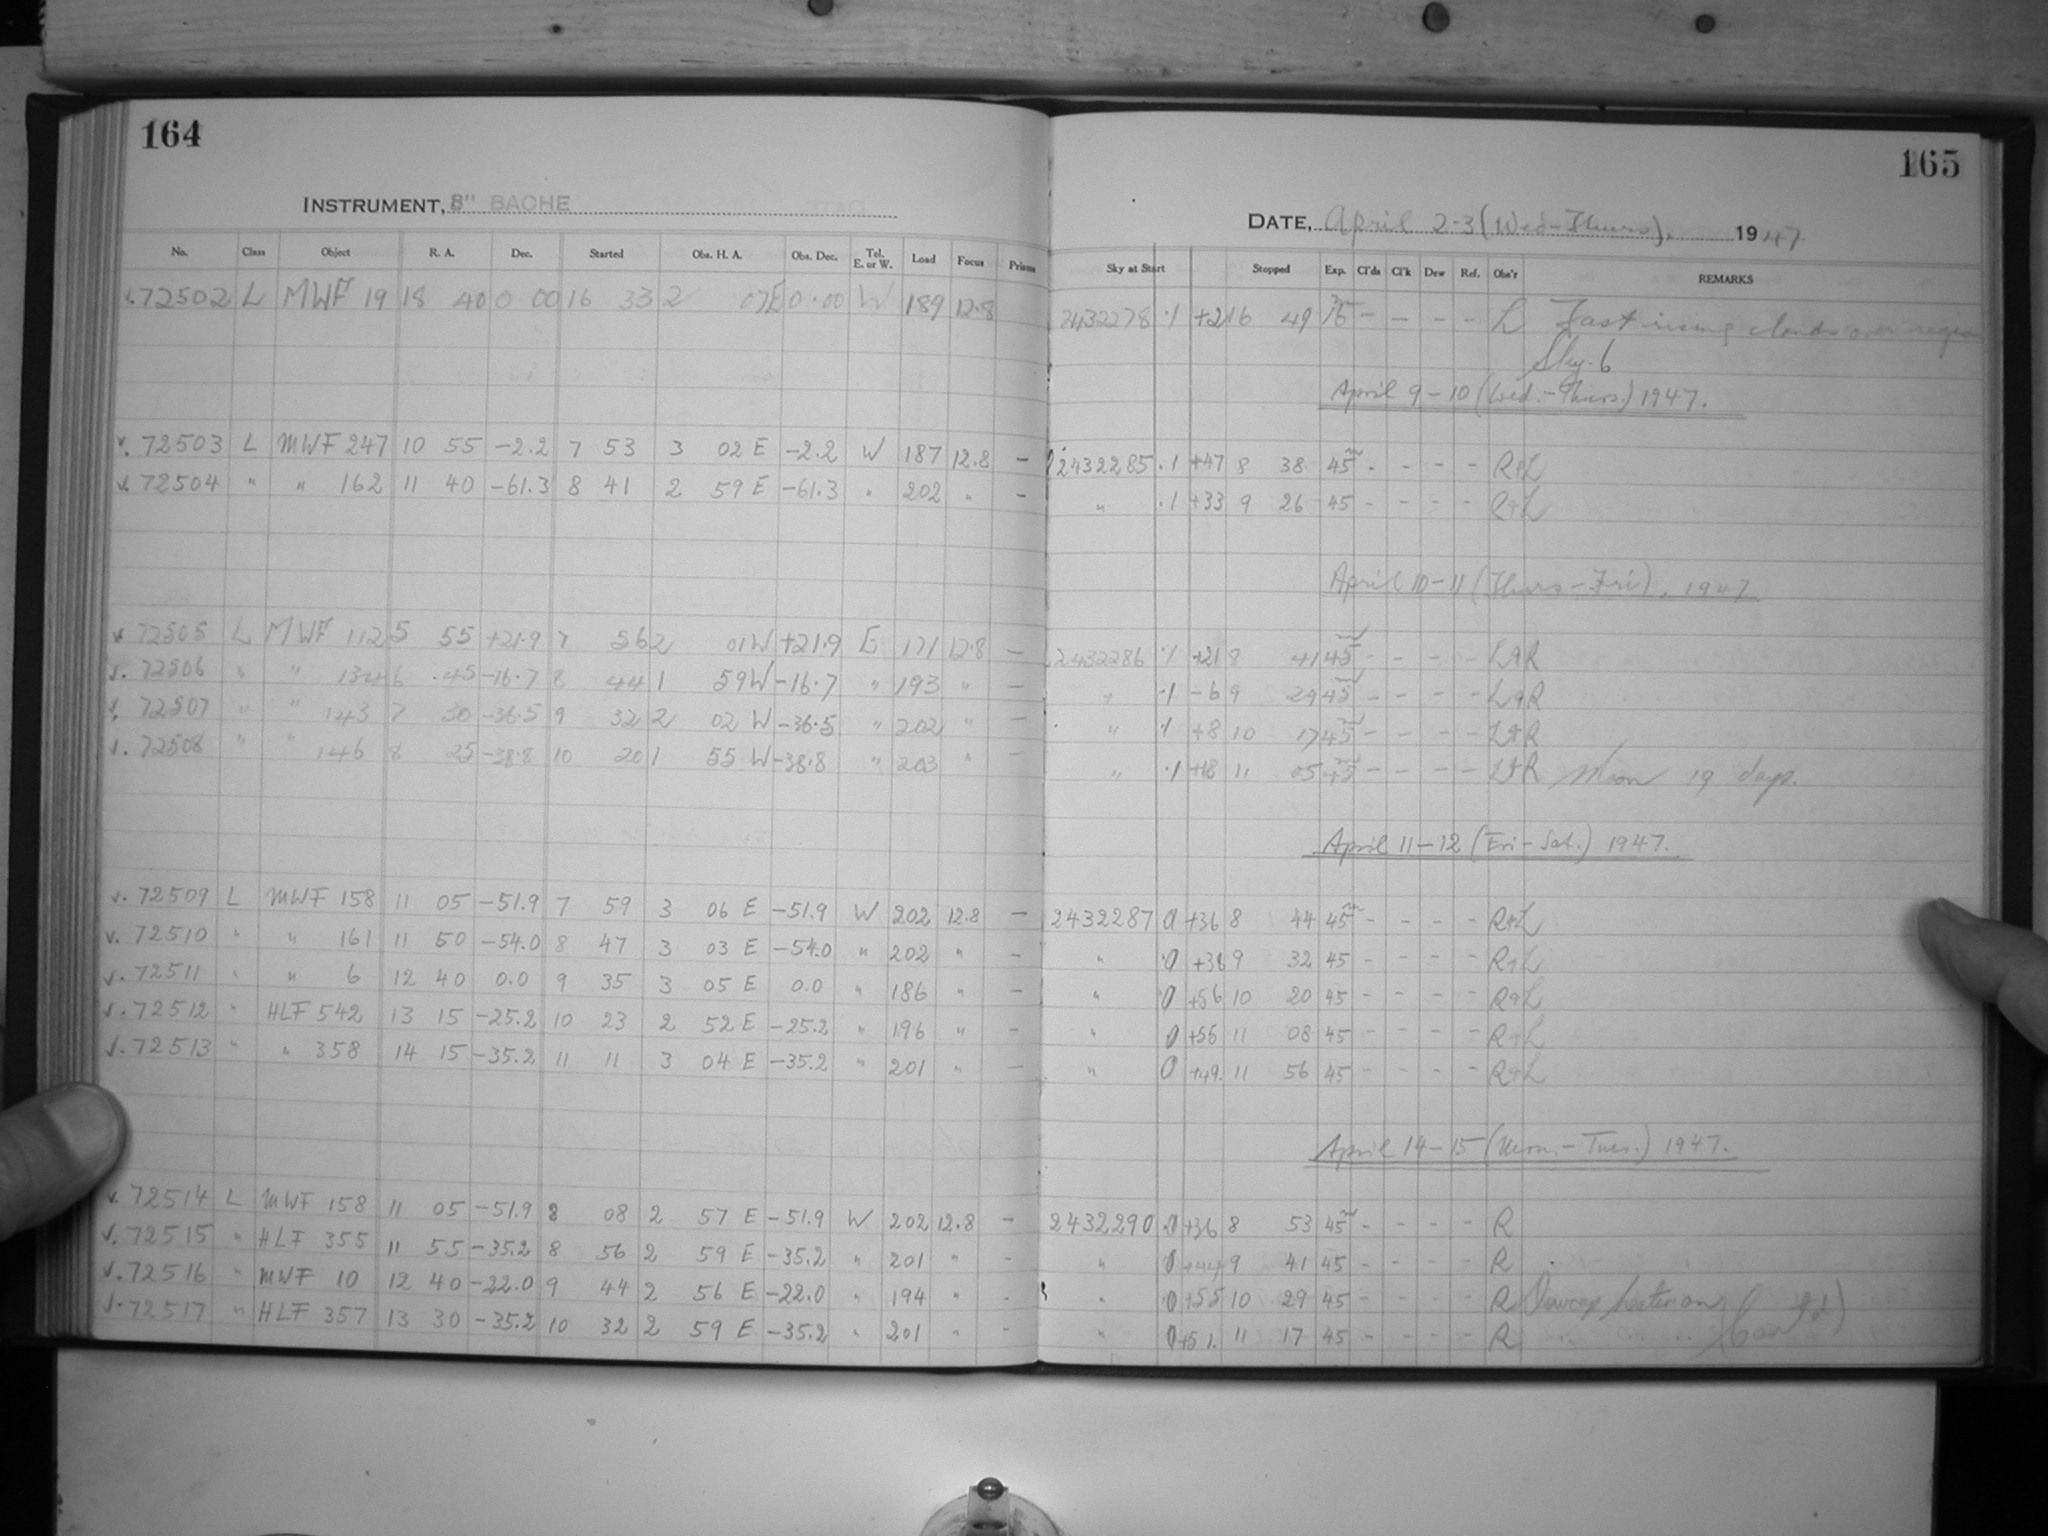 164
INSTRUMENT, 8" BACHE
No. Class Object R. A. Dec. Started Obs. H. A. Obs. Dec. Tel. E. or W. Load Focus Prism
v. 72502 L MWF 19 18 40 0.00 16 33 2 07E 0.00 W 189 12.8
v. 72503 L MWF 247 10 55 -2.2 7 53 3 02 E -2.2 W 187 12.8 -
v. 72504 " " 162 11 40 -61.3 8 41 2 59 E -61.3 " 202 " -
v. 72505 L MWF 112 5 55 +21.9 7 56 2 01W +21.9 E 171 12.8 -
v. 72506 " " 134 6 45 -16.7 8 44 1 59W -16.7 " 193 " -
v. 72507 " " 143 7 30 -36.5 9 32 2 02 W -36.5 " 202 " -
v. 72508 " " 146 8 25 -38.8 10 20 1 55 W -38.8 " 203 " -
v. 72509 L MWF 158 11 05 -51.9 7 59 3 06 E -51.9 W 202 12.8 -
v. 72510 " " 161 11 50 -54.0 8 47 3 03 E -54.0 " 202 " -
v. 72511 " " 6 12 40 0.0 9 35 3 05 E 0.0 " 186 " -
v. 72512 " HLF 542 13 15 -25.2 10 23 2 52 E -25.2 " 196 " -
v. 72513 " " 358 14 15 -35.2 11 11 3 04 E -35.2 " 201 " -
v. 72514 L MWF 158 11 05 -51.9 8 08 2 57 E -51.9 W 202 12.8 -
v. 72515 " HLF 355 11 55 -35.2 8 56 2 59 E -35.2 " 201 " -
v. 72516 " MWF 10 12 40 -22.0 9 44 2 56 E -22.0 " 194 " -
v. 72517 " HLF 357 13 30 -35.2 10 32 2 59 E -35.2 " 201 " -
165
DATE, April 2-3 (Wed-Thurs), 1947
Sky at Start Stopped Exp. Cl'ds Cl'k Dew Ref. Obs'r REMARKS
2432278 .1 +2 16 49 16 - - - - L Fast rising clouds over region
Sky .6
April 9-10 (Wed.-Thurs.) 1947.
2432285 .1 +47 8 38 45 - - - - R+L
" .1 +33 9 26 45 - - - - R+L
April 10-11 (Thurs-Fri), 1947
2432286 .1 +21 8 41 45 - - - - L+R
" .1 -6 9 29 45 - - - - L+R
" .1 +8 10 17 45 - - - - L+R
" .1 +18 11 05 45 - - - - L+R Moon 19 days.
April 11-12 (Fri-Sat.) 1947.
2432287 0 +36 8 44 45 - - - - R+L
" 0 9 32 45 - - - - R+L
" 0 +56 10 20 45 - - - - R+L
" 0 +56 11 08 45 - - - - R+L
" 0 +49. 11 56 45 - - - - R+L
April 14-15 (Mon.-Tues.) 1947.
2432290 .0 +36 8 53 45 - - - - R
" 0 +44 9 41 45 - - - - R
" .0 +55 10 29 45 - - - - R Dewcap heater on
" 0 +51. 11 17 45 - - - - R " " " (Cont'd)